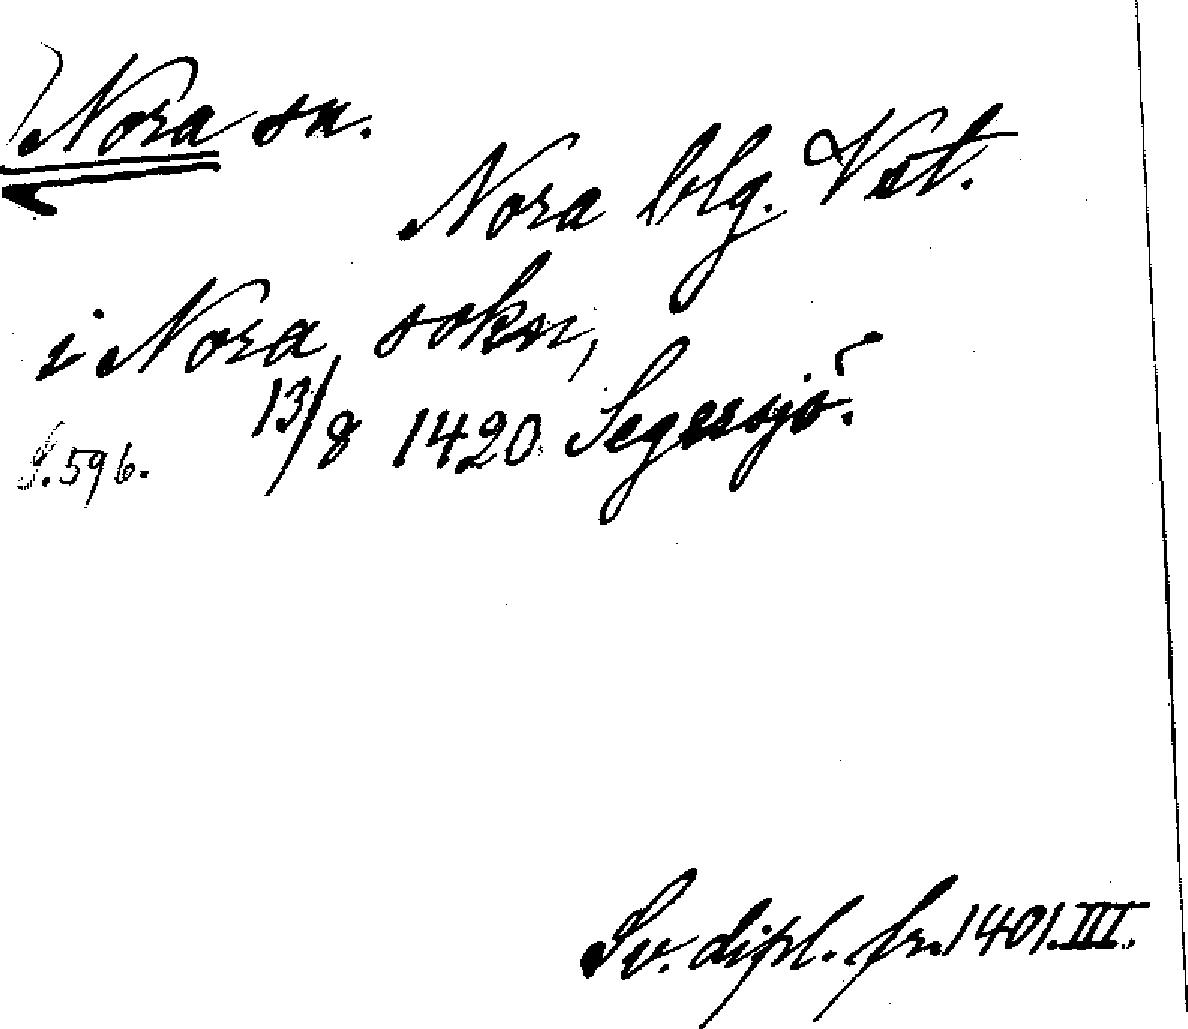 Nora sn.
Nora blg. Vst.
i Nora sokn,
13/8 1420. Segersjö.
S. 596.
Sv. dipl. fr. 1401. III.